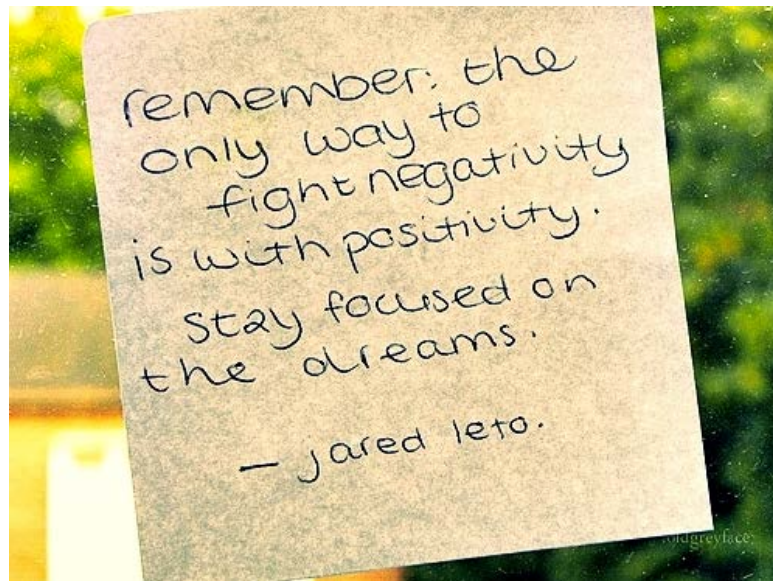 remember: the
only way to
fight negativity
is with positivity.
stay focused on
the dreams.
— jared leto.
oldgreyface